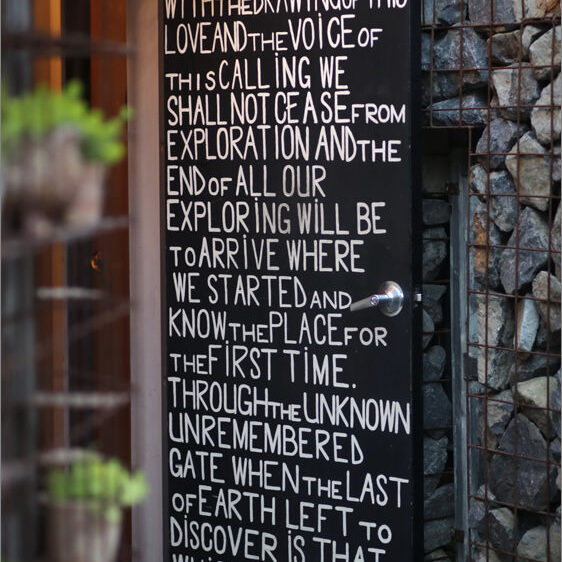 WITH THE DRAWING OF THIS
LOVE AND THE VOICE OF
THIS CALLING WE
SHALL NOT CEASE FROM
EXPLORATION AND THE
END OF ALL OUR
EXPLORING WILL BE
TO ARRIVE WHERE
WE STARTED AND
KNOW THE PLACE FOR
THE FIRST TIME.
THROUGH THE UNKNOWN
UNREMEMBERED
GATE WHEN THE LAST
OF EARTH LEFT TO
DISCOVER IS THAT